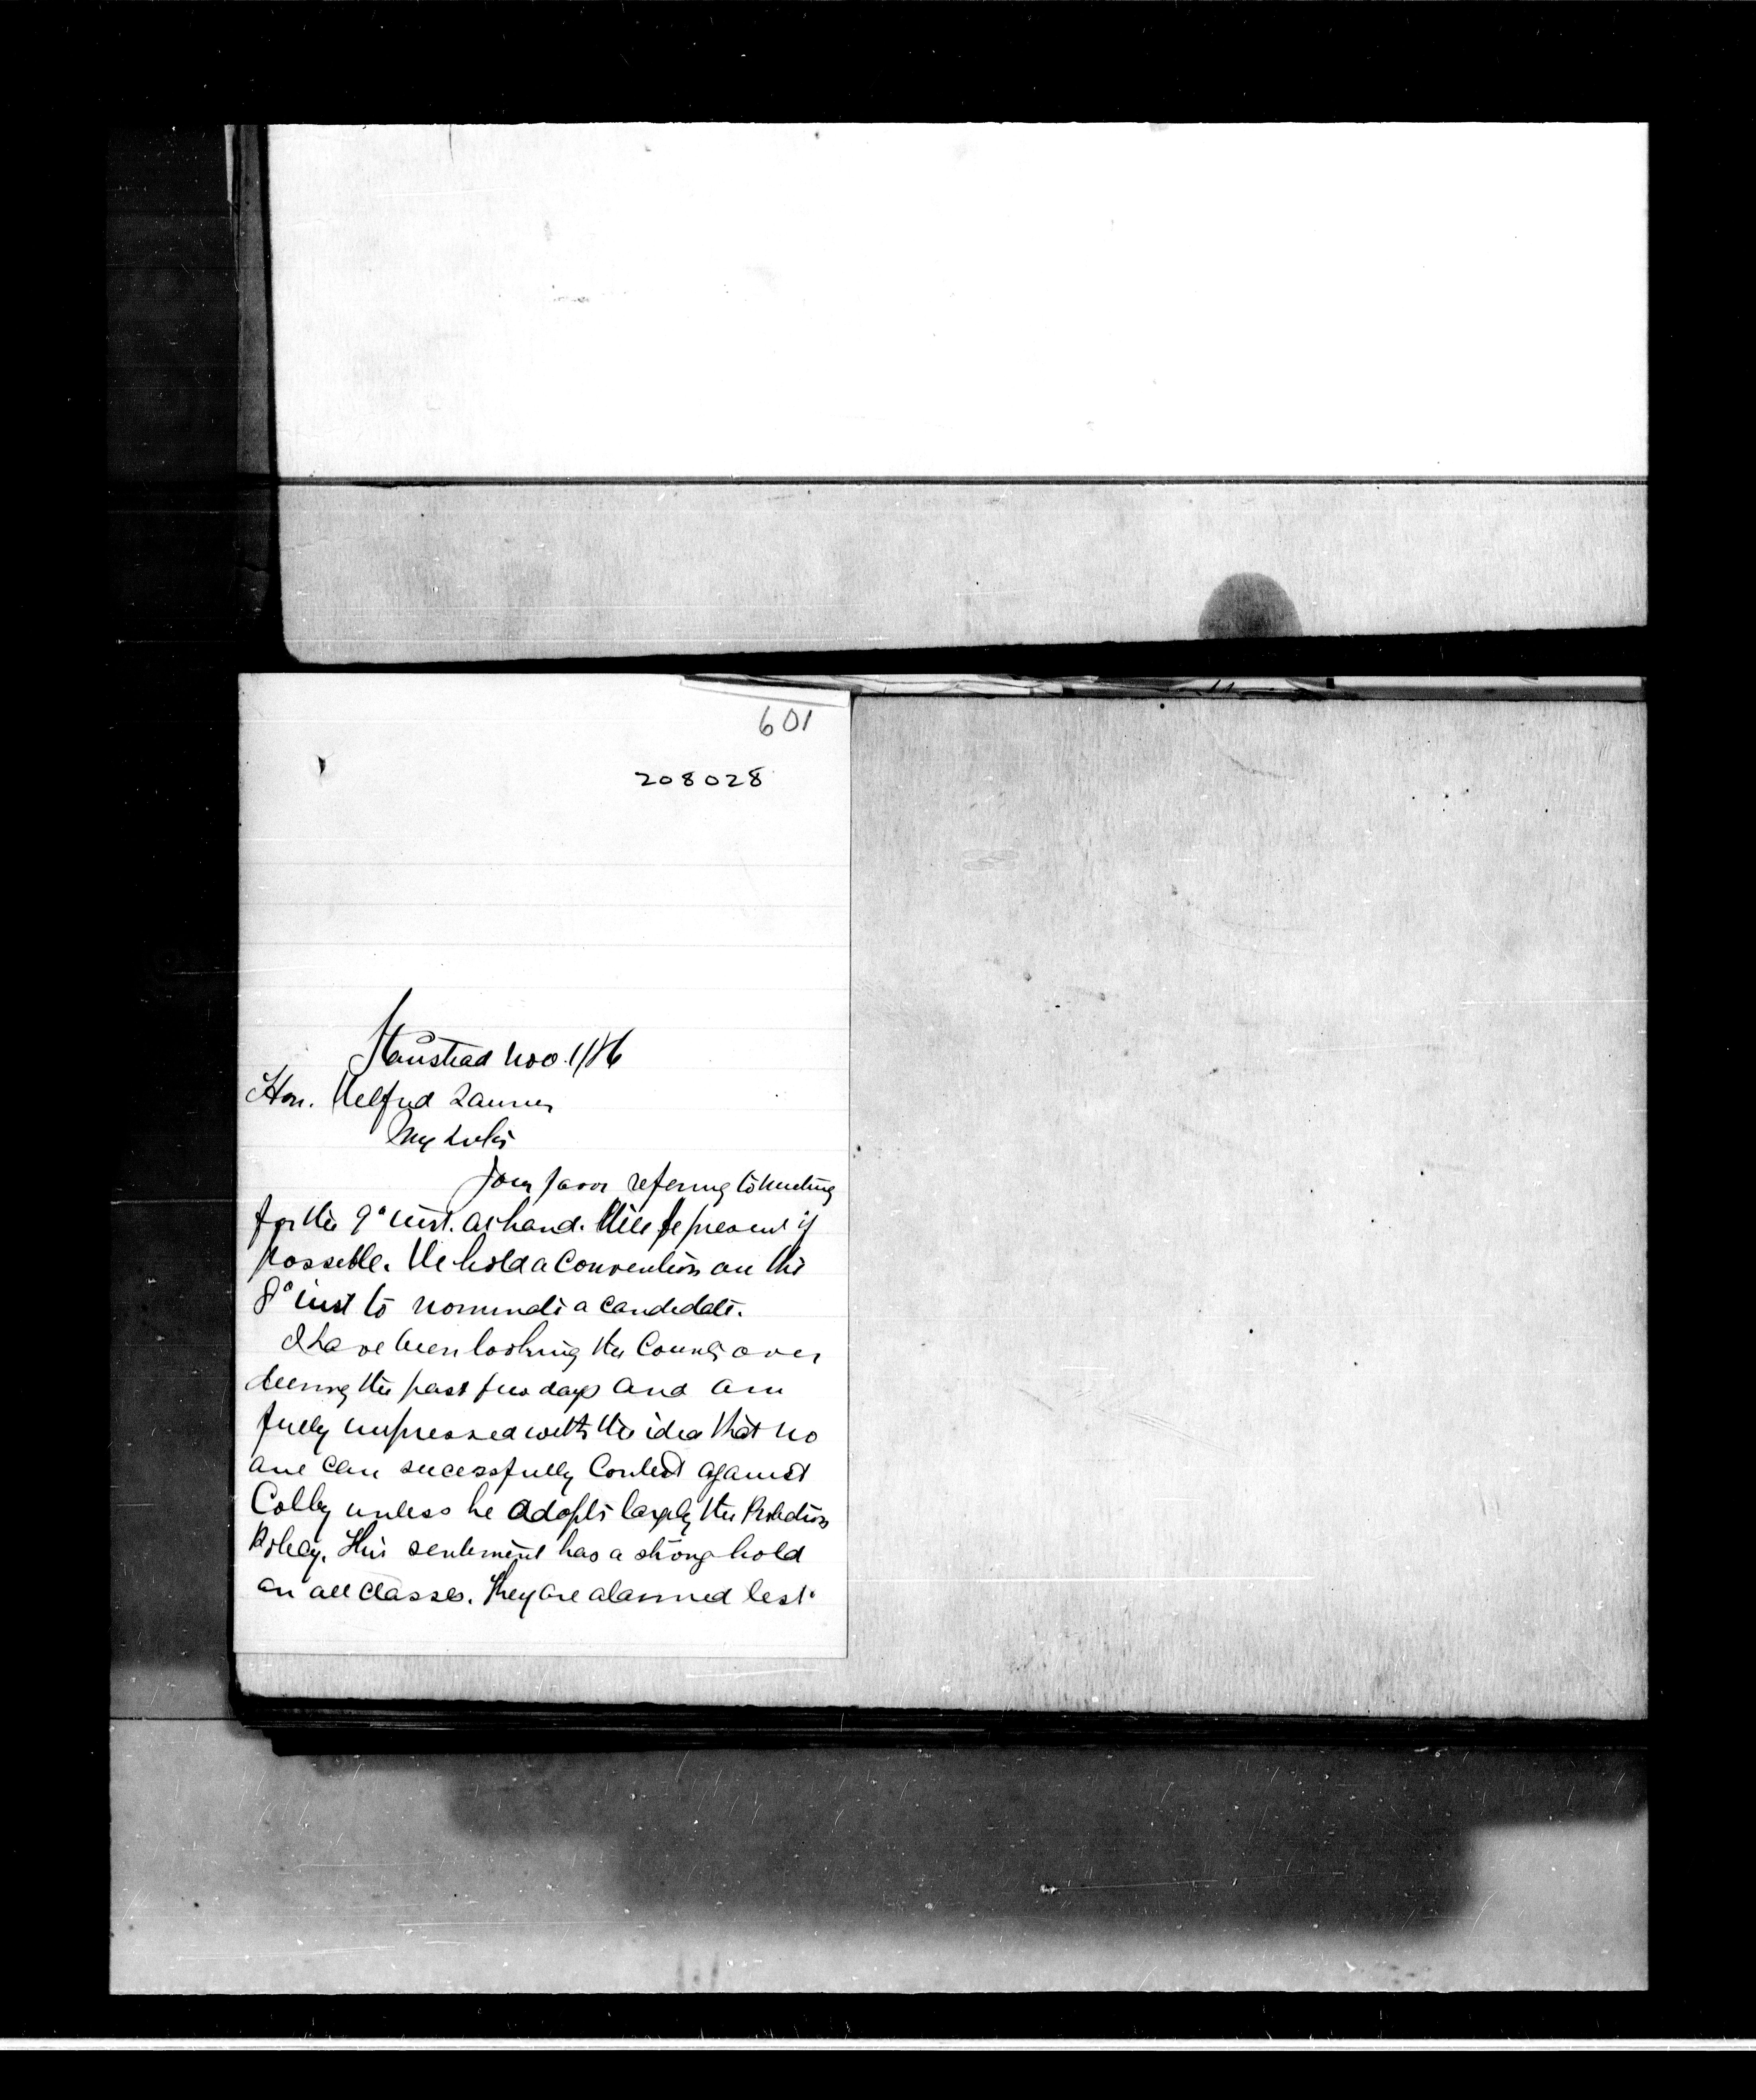 601
208028
Stanstead Nov. 1/86
Hon. Wilfred Laurier
My dr Sir
Your favor refering to meeting
for the 9° inst. at hand. Will be present if
possible. We hold a Convention on the
8° inst to nominate a candidate.
I have been looking the County over
during the past few days and am
fully impressed with the idea that no
one can sucessfully Contest against
Colby unless he adopts largely the Protection
Policy. This sentiment has a strong hold
on all classes. They are alarmed lest